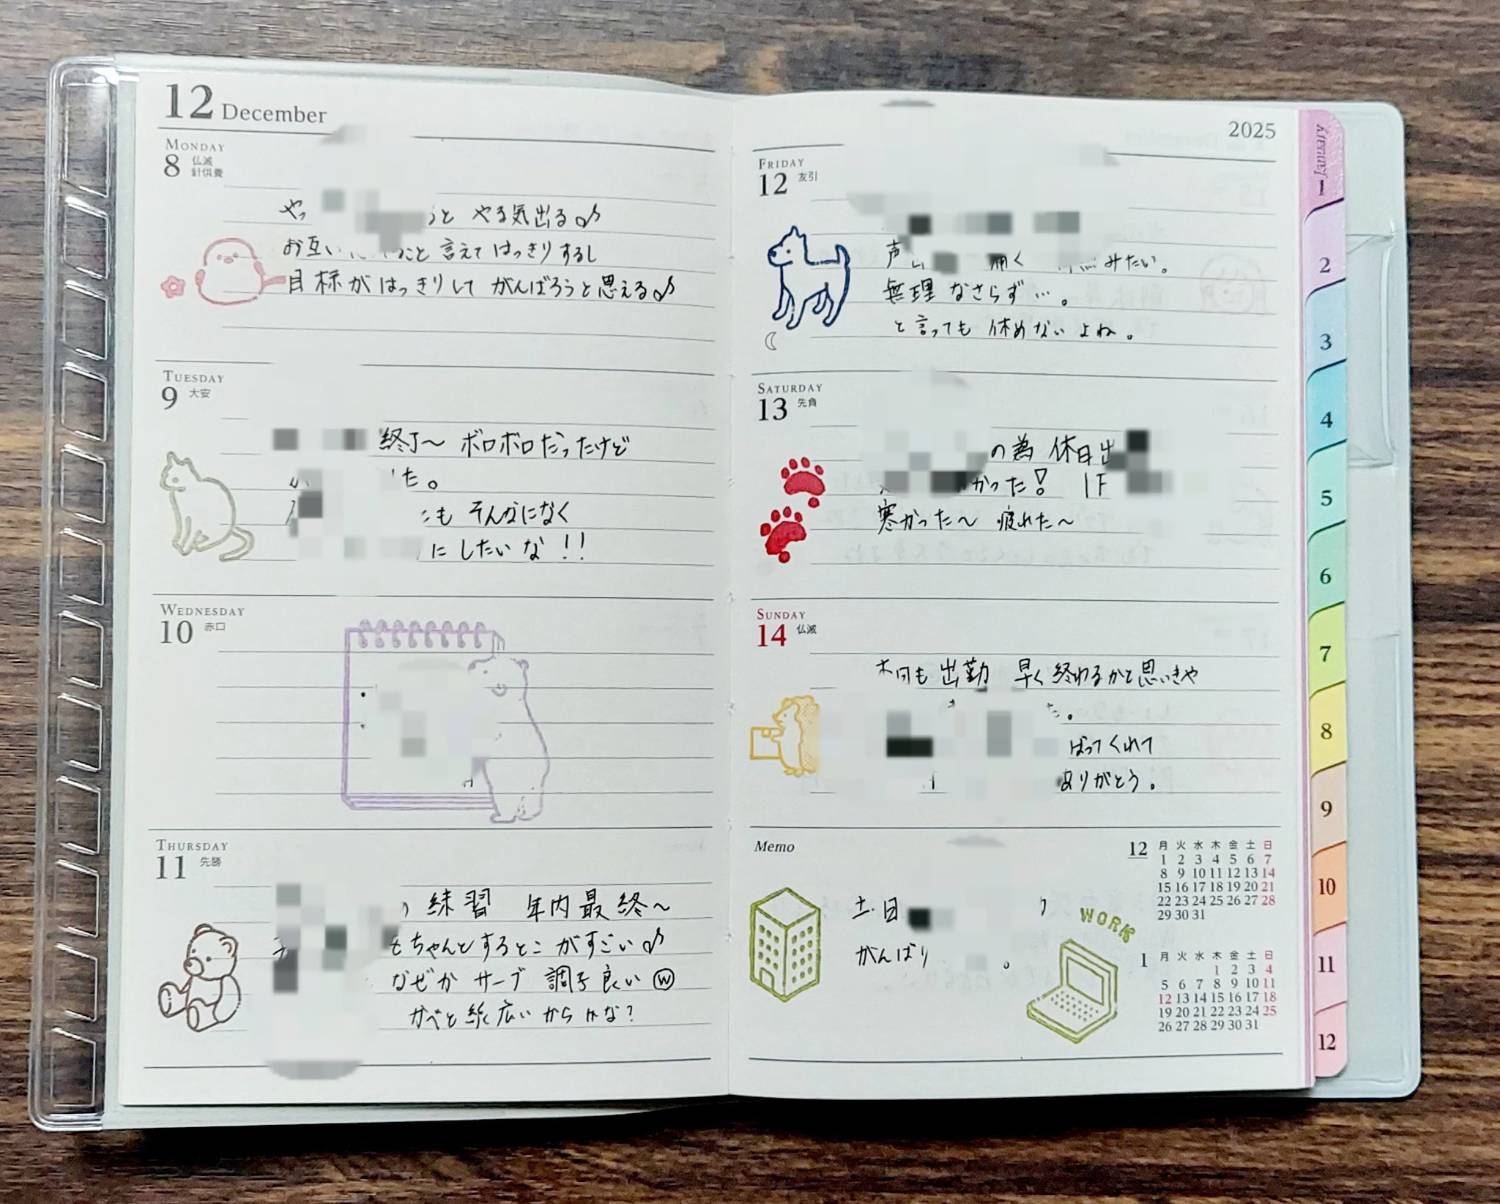 12 December
MONDAY
8 仏滅
針供養
やる気出る♪
お互い こと 言えて はっきりするし
目標が はっきりして がんばろうと思える♪
TUESDAY
9 大安
終了〜 ボロボロだったけど
た。
も そんなになく
にしたいな!!
WEDNESDAY
10 赤口
THURSDAY
11 先勝
練習 年内最終〜
ちゃんとするとこがすごい♪
なぜか サーブ 調子良い ⓦ
かべと 広いからかな?
2025
FRIDAY
12 友引
声 聞く みたい。
無理なさらず…。
と言っても 休めないよね。
SATURDAY
13 先負
の為 休日出
かった! 1F
寒かった〜 疲れた〜
SUNDAY
14 仏滅
本日も 出勤 早く終わるかと思いきや
た。
ばってくれて
ありがとう。
Memo
土日
がんばり 。
WORK
12 月 火 水 木 金 土 日
1 2 3 4 5 6 7
8 9 10 11 12 13 14
15 16 17 18 19 20 21
22 23 24 25 26 27 28
29 30 31
1 月 火 水 木 金 土 日
1 2 3 4
5 6 7 8 9 10 11
12 13 14 15 16 17 18
19 20 21 22 23 24 25
26 27 28 29 30 31
1 January
2
3
4
5
6
7
8
9
10
11
12